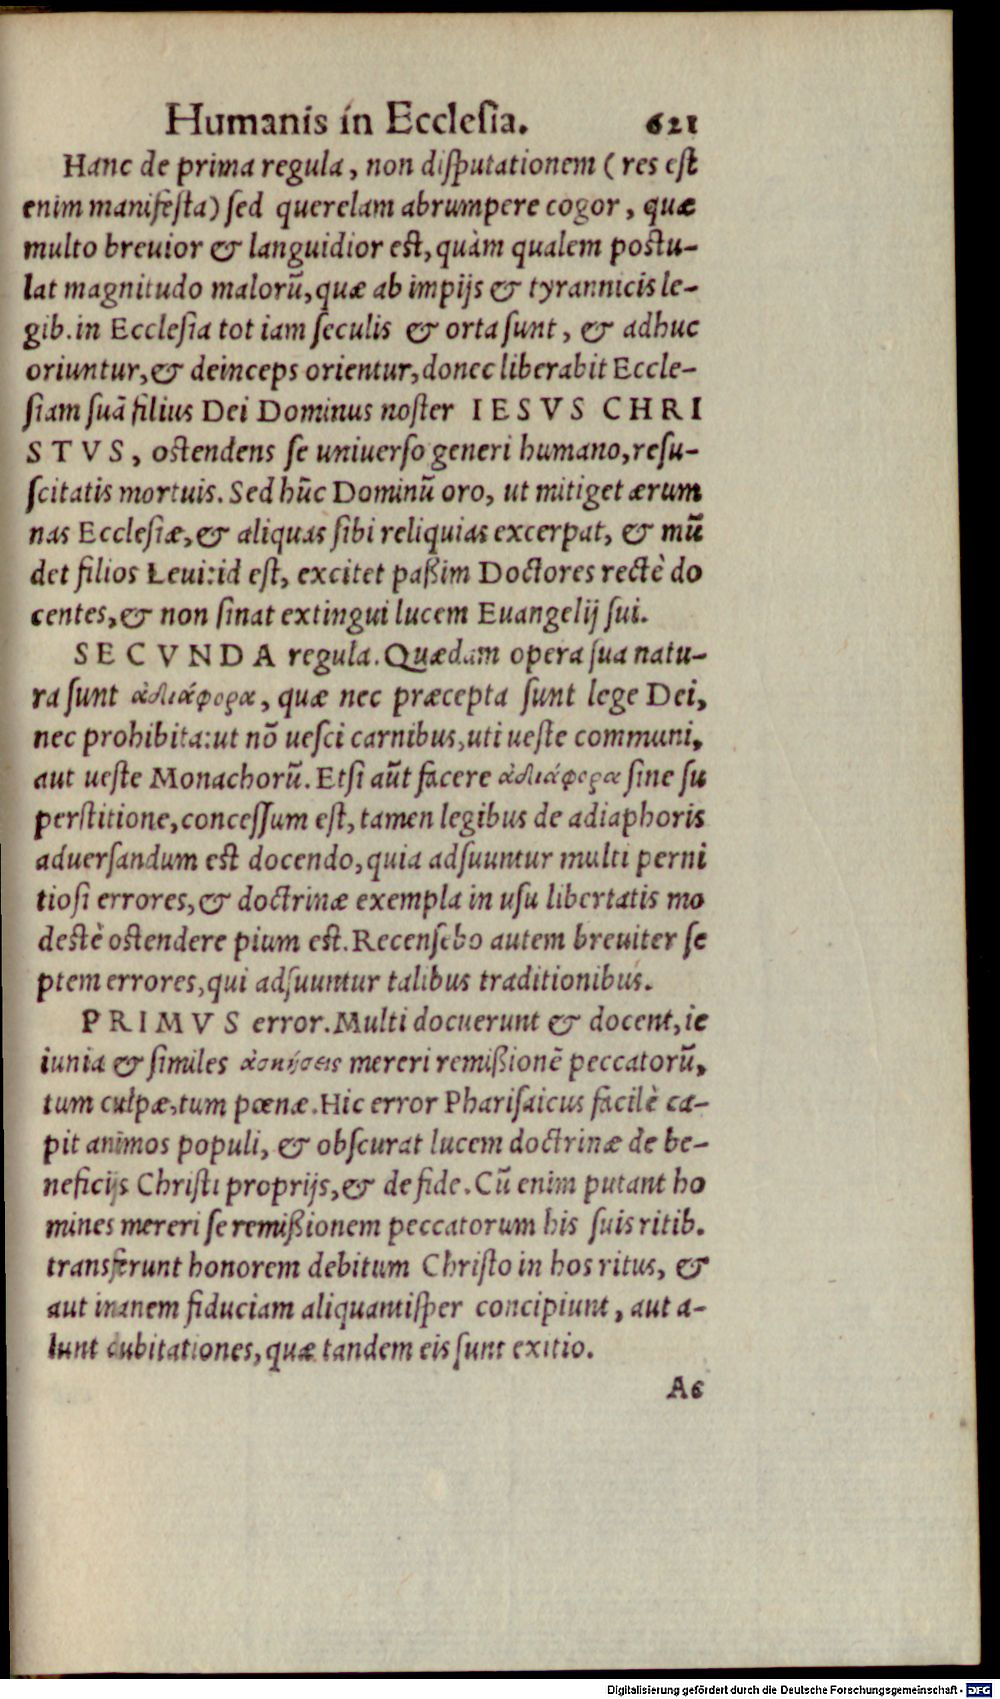 Humanis in Ecclesia. 621
Hanc de prima regula, non disputationem (res est
enim manifesta) sed querelam abrumpere cogor, quæ
multo breuior & languidior est, quàm qualem postu-
lat magnitudo malorũ, quæ ab impijs & tyrannicis le-
gib. in Ecclesia tot iam seculis & orta sunt, & adhuc
oriuntur, & deinceps orientur, donec liberabit Eccle-
siam suã filius Dei Dominus noster IESVS CHRI
STVS, ostendens se uniuerso generi humano, resu-
scitatis mortuis. Sed hũc Dominũ oro, ut mitiget ærum
nas Ecclesiæ, & aliquas sibi reliquias excerpat, & mũ
det filios Leui: id est, excitet paßim Doctores rectè do
centes, & non sinat extingui lucem Euangelij sui.
SECVNDA regula. Quædam opera sua natu-
ra sunt ἀδιάφορα, quæ nec præcepta sunt lege Dei,
nec prohibita: ut nõ uesci carnibus, uti ueste communi,
aut ueste Monachorũ. Etsi aũt facere ἀδιάφορα sine su
perstitione, concessum est, tamen legibus de adiaphoris
aduersandum est docendo, quia adsuuntur multi perni
tiosi errores, & doctrinæ exempla in usu libertatis mo
destè ostendere pium est. Recensebo autem breuiter se
ptem errores, qui adsuuntur talibus traditionibus.
PRIMVS error. Multi docuerunt & docent, ie
iunia & similes ἀσκήσεις mereri remißionẽ peccatorũ,
tum culpæ, tum pœnæ. Hic error Pharisaicus facilè ca-
pit animos populi, & obscurat lucem doctrinæ de be-
neficijs Christi proprijs, & de fide. Cũ enim putant ho
mines mereri se remißionem peccatorum his suis ritib.
transferunt honorem debitum Christo in hos ritus, &
aut inanem fiduciam aliquantisper concipiunt, aut a-
lunt dubitationes, quæ tandem eis sunt exitio.
Ac
Digitalisierung gefördert durch die Deutsche Forschungsgemeinschaft - DFG